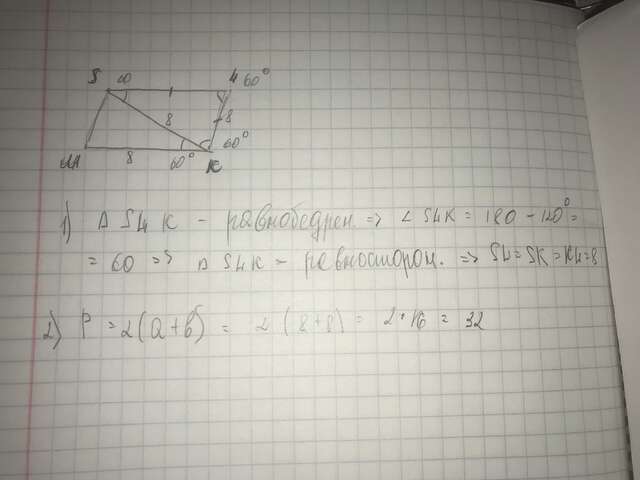 S 60 Ч 60°
8 8
60°
М 8 60° К
1) Δ SЧК - равнобедрен. => ∠ SЧК = 180 - 120° =
= 60 => Δ SЧК - равносторон. => SЧ = SК = КЧ = 8
2) P = 2(a+b) = 2(8+8) = 2·16 = 32